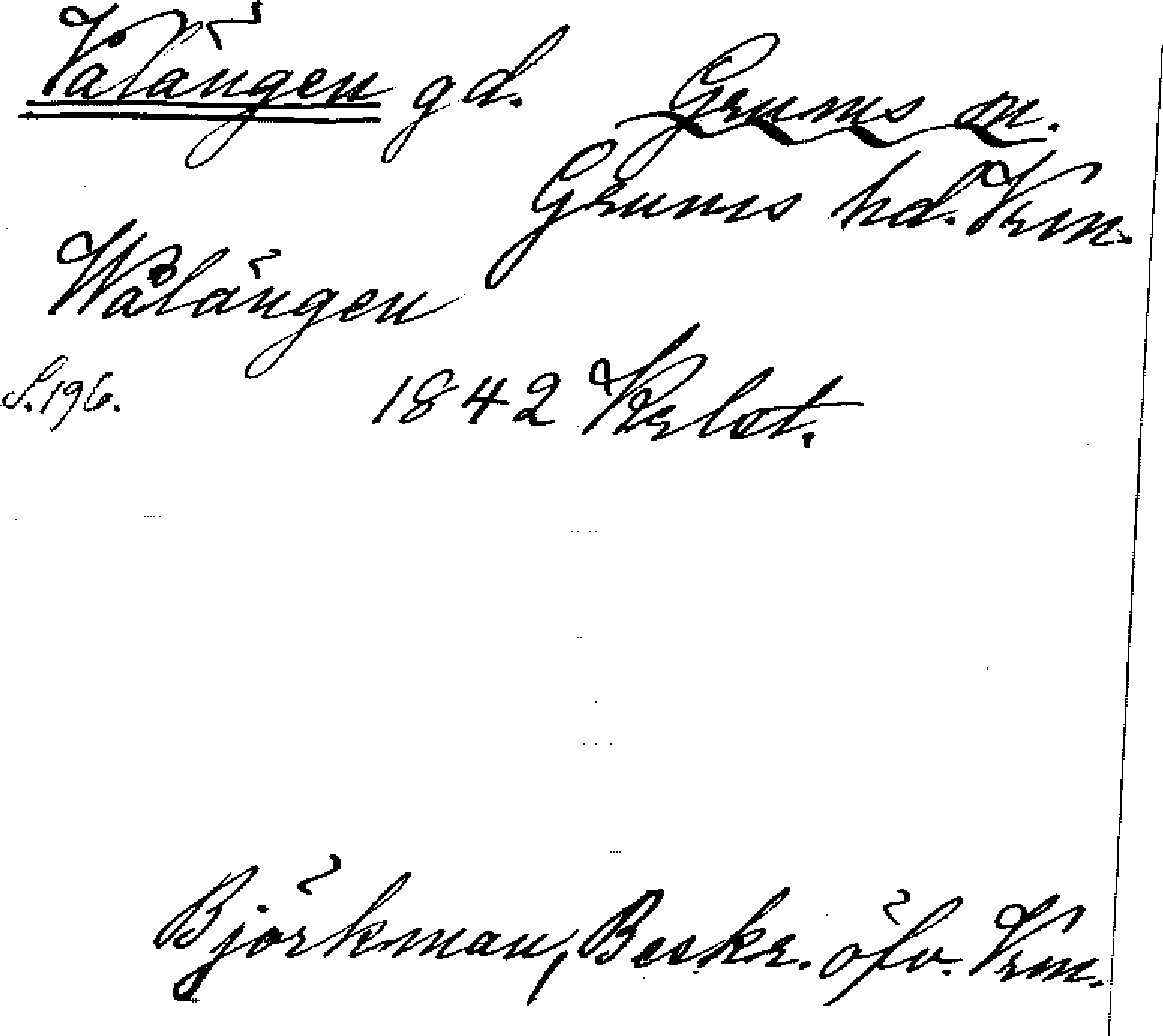 Vålängen gd. Grums sn.
Grums hd. Vrm.
Wålängen
S. 196. 1842 Krlst.
Björkman, Beskr. öfv. Vrm.